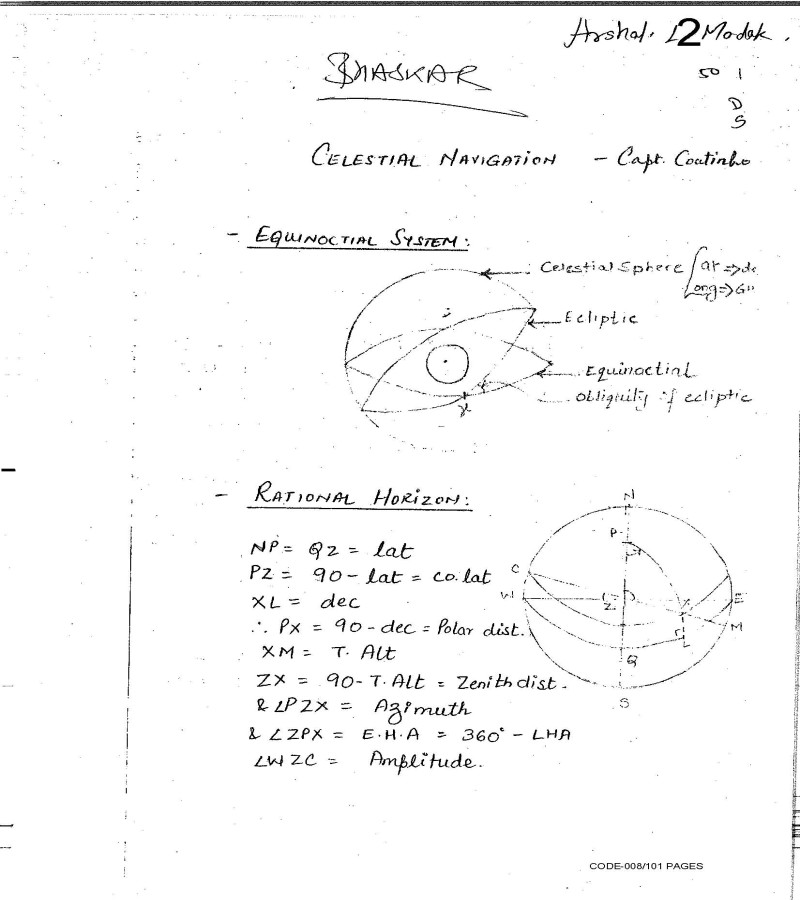 2 Modak.
BHASKAR
50 1
D
S
CELESTIAL NAVIGATION - Capt. Coutinho
- EQUINOCTIAL SYSTEM:
Celestial Sphere
Ecliptic
Equinoctial
obliquity of ecliptic
γ
- RATIONAL HORIZON:
N
P
C
W
Z
X
E
M
L
Q
S
NP = QZ = lat
PZ = 90 - lat = co. lat
XL = dec
∴ PX = 90 - dec = Polar dist.
XM = T. Alt
ZX = 90 - T. Alt = Zenith dist.
& ∠PZX = Azimuth
& ∠ZPX = E.H.A = 360° - LHA
∠WZC = Amplitude.
CODE-008/101 PAGES